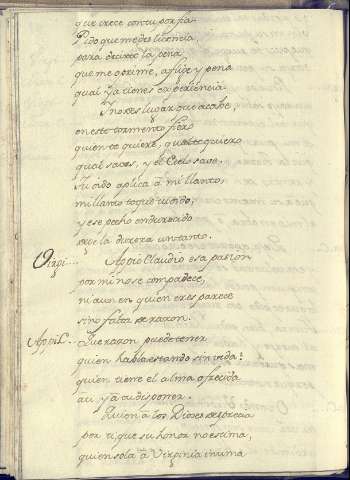 que crece con tu porfia.
Pido que me des licencia,
para deciros la pena
que me oprime, aflije y pena
qual ya tienes experiencia.
Y no des lugar que acabe,
en este tormento fiero
quien te quiere, qual te quiero
qual saves, y el Cielo save.
Tu oido aplica à mi llanto,
mi llanto toque tu oido,
y ese pecho endurecido
dexe la dureza un tanto.
Virgi.... Appio Claudio esa pasion
por mi no se compadece,
ni aun en quien eres parece
sino falta de razon.
Appio C. Que razon puede tener
quien habla estando sin vida?
quien tiene el alma ofrecida
a ti, y a tu disponer.
Quien à los Dioses desprecia
por ti, que su honor no estima,
quien sola à Virginia intima